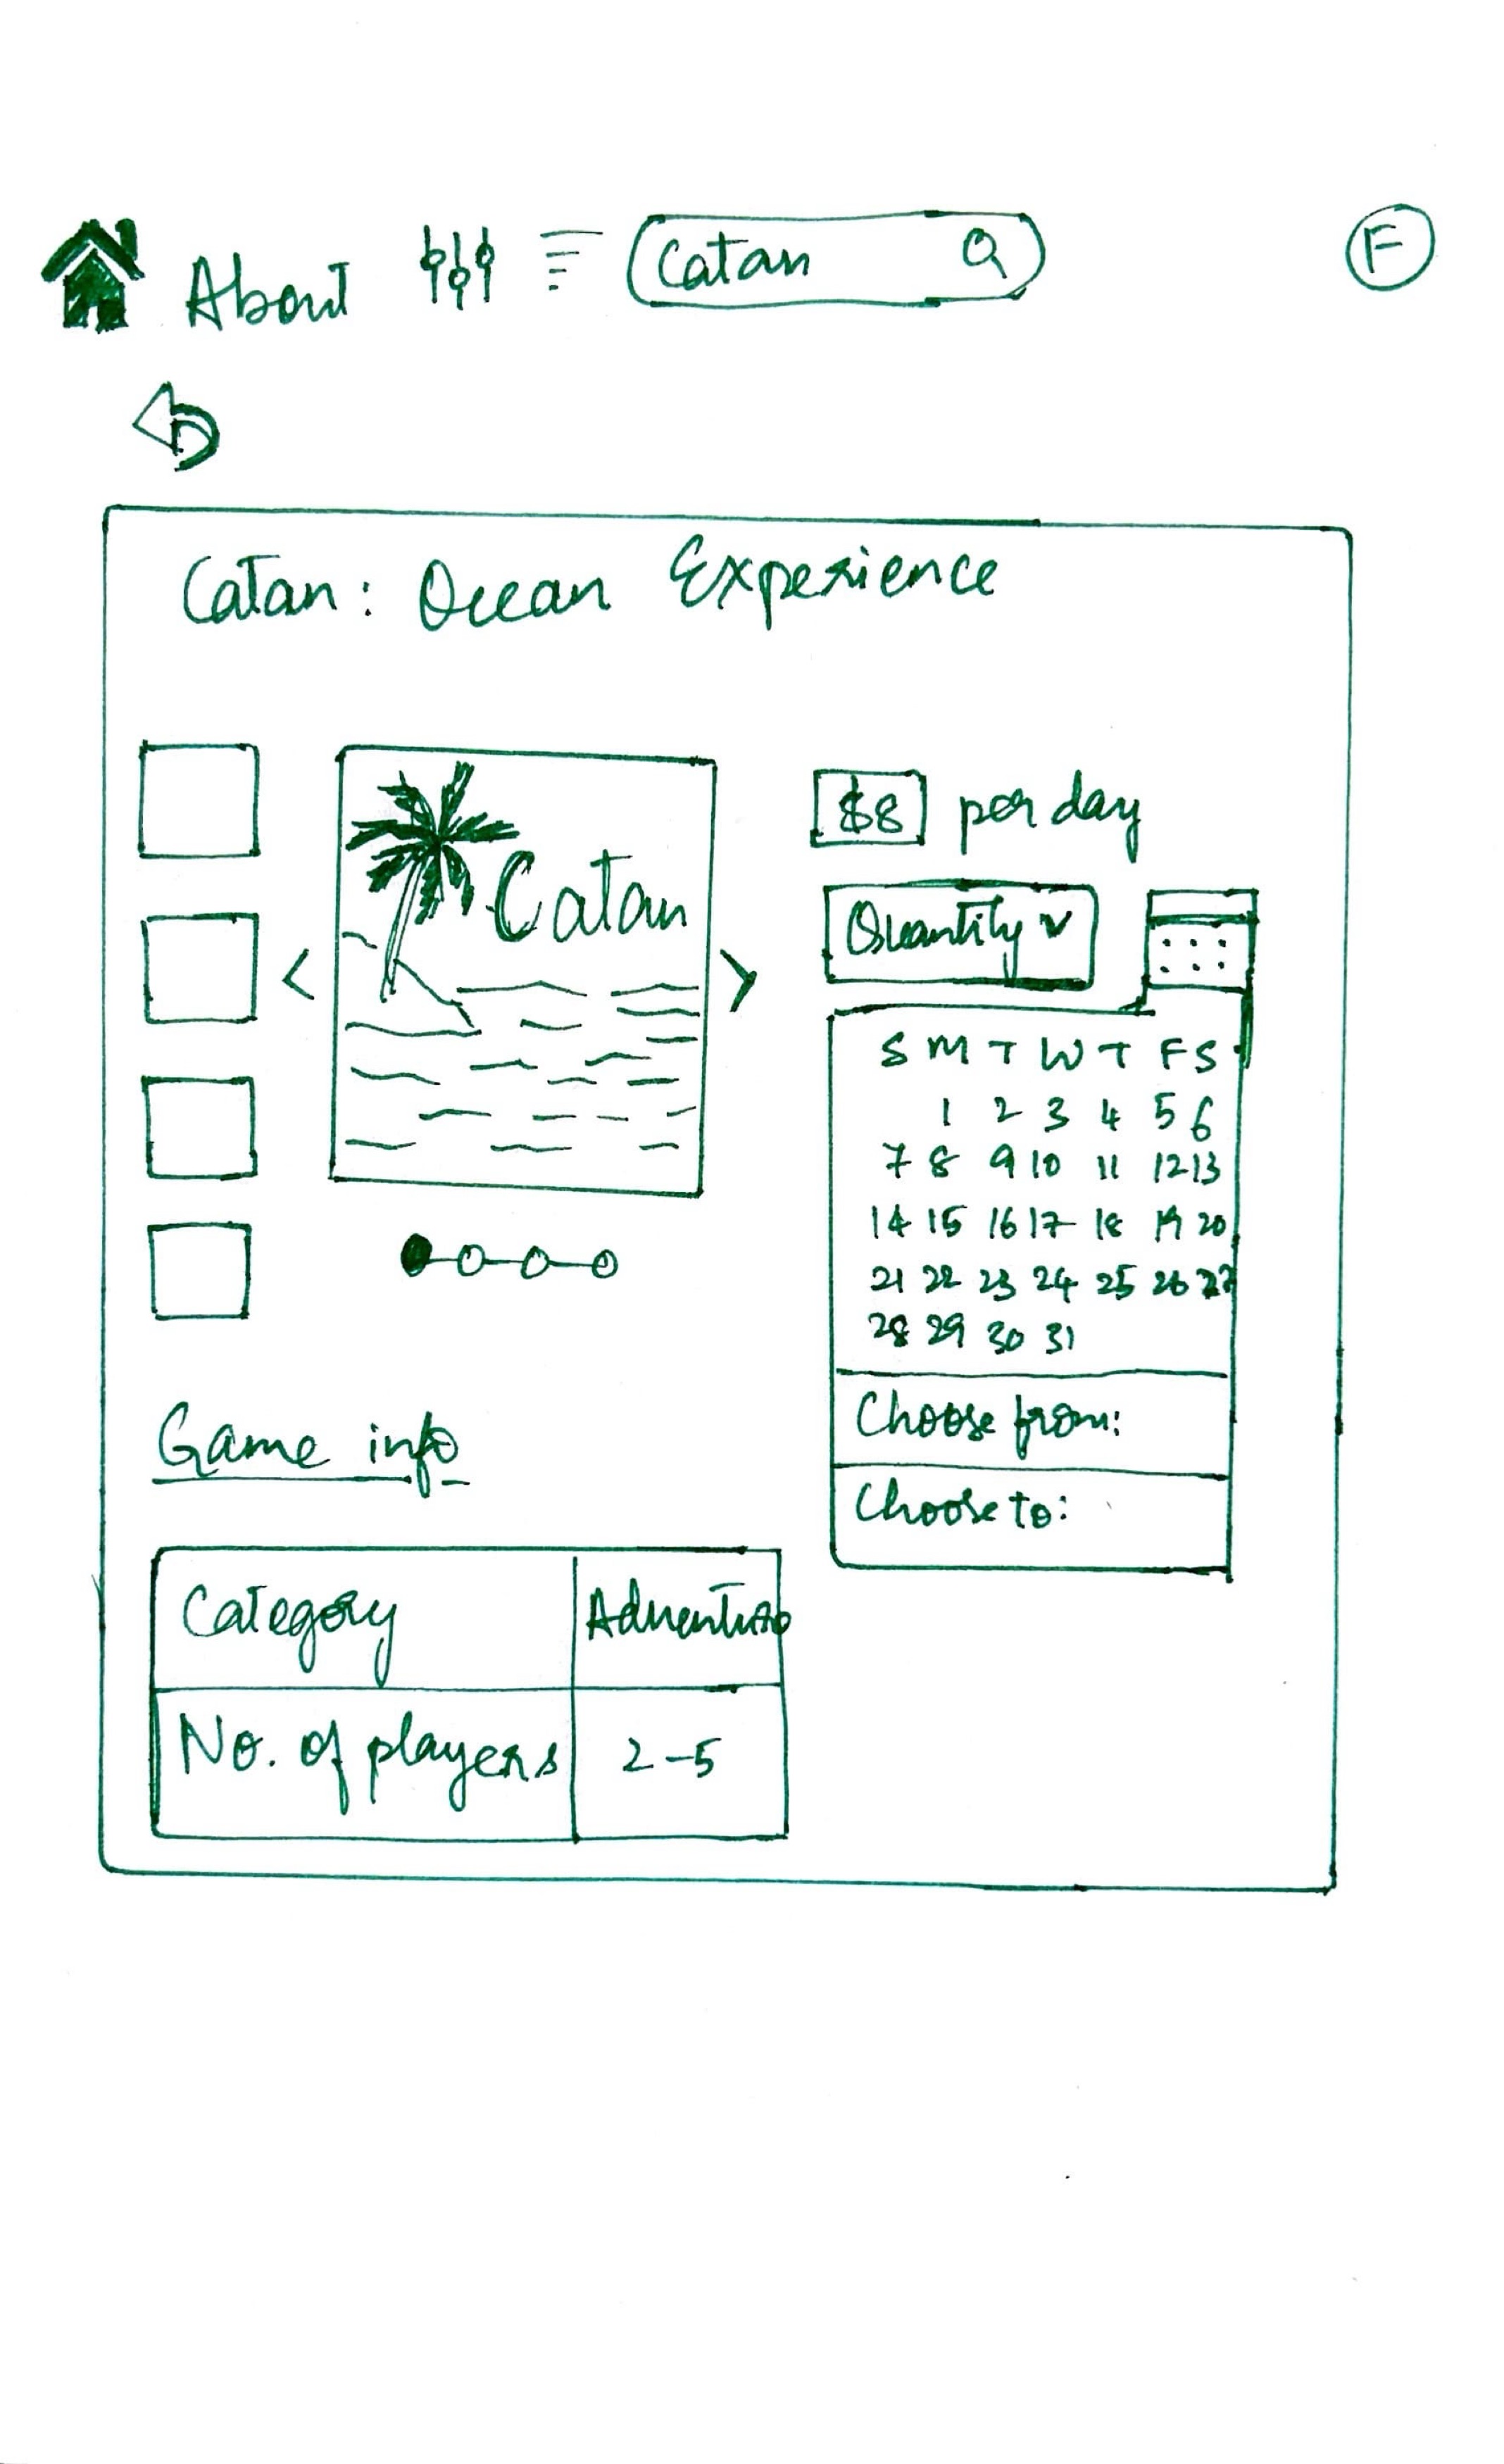 About
Catan
F
Catan: Ocean Experience
Catan
$8 per day
Quantity
S M T W T F S
1 2 3 4 5 6
7 8 9 10 11 12 13
14 15 16 17 18 19 20
21 22 23 24 25 26 27
28 29 30 31
Choose from:
Choose to:
Game info
Category Adventure
No. of players 2-5